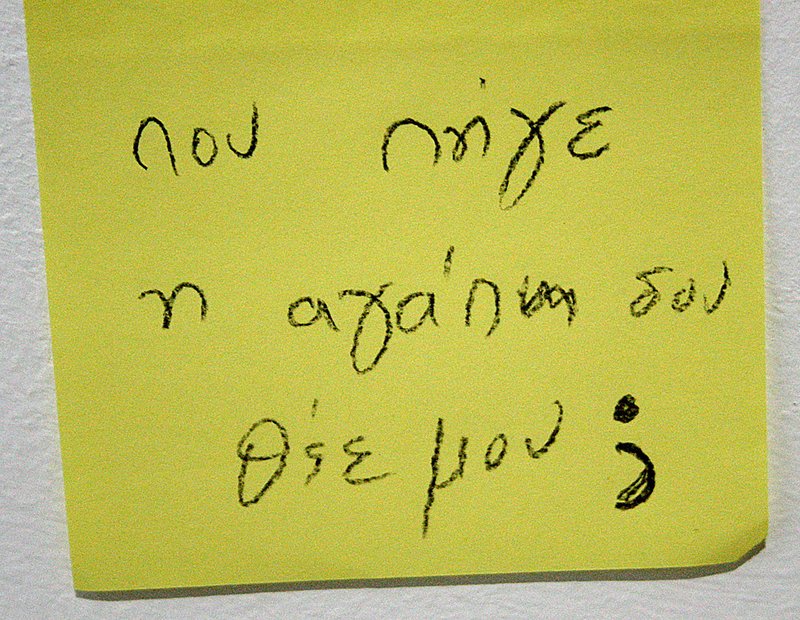 που πήγε
η αγάπη σου
θέε μου ;